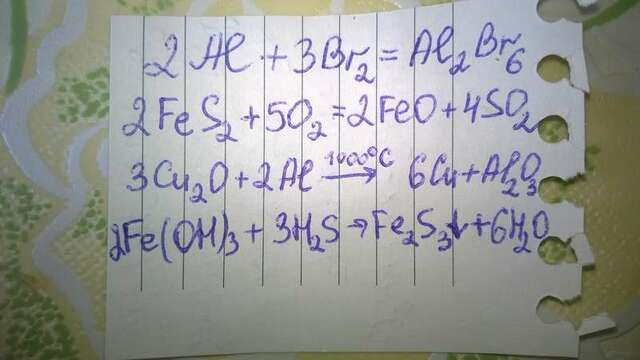 2Al + 3Br₂ = Al₂Br₆
2FeS₂ + 5O₂ = 2FeO + 4SO₂
3Cu₂O + 2Al 1000°C → 6Cu + Al₂O₃
2Fe(OH)₃ + 3H₂S → Fe₂S₃↓ + 6H₂O